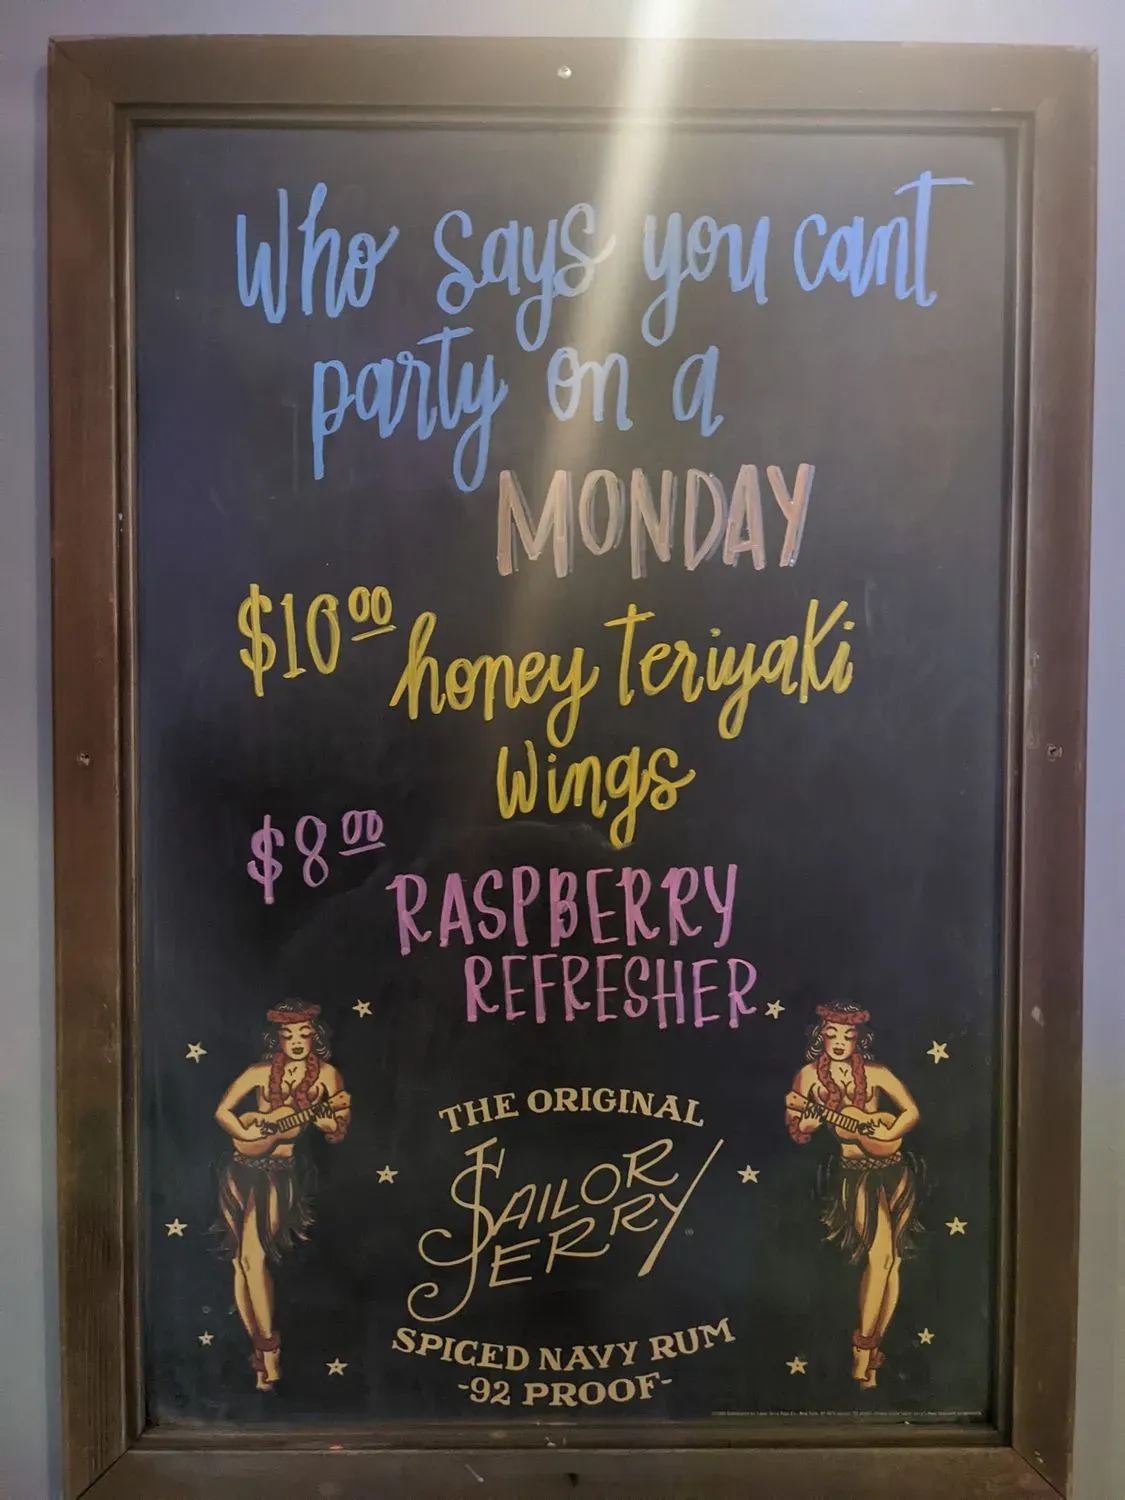 Who says you cant
party on a
MONDAY
$10.00 honey teriyaki
wings
$8.00 RASPBERRY
REFRESHER
THE ORIGINAL
SAILOR
JERRY
SPICED NAVY RUM
-92 PROOF-